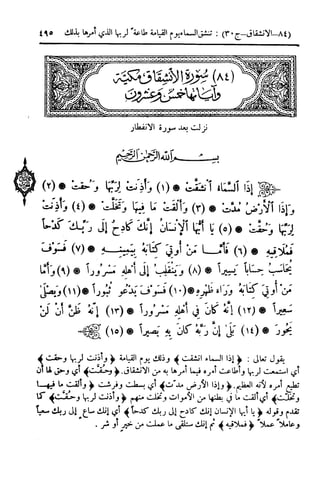 (٨٤-الانشقاق-ج٣٠) : تنشق السماء يوم القيامة طاعة لربها الذي أمرها بذلك ٤٩٥
(٨٤) سورة الانشقاق مكية
وآياتها خمس وعشرون
نزلت بعد سورة الانفطار
بسم الله الرحمن الرحيم
إذا السماء انشقت * (١) وأذنت لربها وحقت * (٢)
وإذا الأرض مدت * (٣) وألقت ما فيها وتخلت * (٤) وأذنت
لربها وحقت * (٥) يا أيها الإنسان إنك كادح إلى ربك كدحا
فملاقيه * (٦) فأما من أوتي كتابه بيمينه * (٧) فسوف
يحاسب حسابا يسيرا * (٨) وينقلب إلى أهله مسرورا * (٩) وأما
من أوتي كتابه وراء ظهره * (١٠) فسوف يدعو ثبورا * (١١) ويصلى
سعيرا * (١٢) إنه كان في أهله مسرورا * (١٣) إنه ظن أن لن
يحور * (١٤) بلى إن ربه كان به بصيرا * (١٥)
يقول تعالى : ﴿ إذا السماء انشقت ﴾ وذلك يوم القيامة ﴿ وأذنت لربها وحقت ﴾
أي استمعت لربها وأطاعت أمره فيما أمرها به من الانشقاق. ﴿ وحقت ﴾ أي وحق لها أن
تطيع أمره لأنه العظيم. ﴿ وإذا الأرض مدت ﴾ أي بسطت وفرشت ﴿ وألقت ما فيها
وتخلت ﴾ أي ألقت ما في بطنها من الأموات وتخلت منهم ﴿ وأذنت لربها وحقت ﴾ كما
تقدم وقوله ﴿ يا أيها الإنسان إنك كادح إلى ربك كدحا ﴾ أي إنك ساع إلى ربك سعيا
وعاملا عملا ﴿ فملاقيه ﴾ ثم إنك ستلقى ما عملت من خير أو شر .